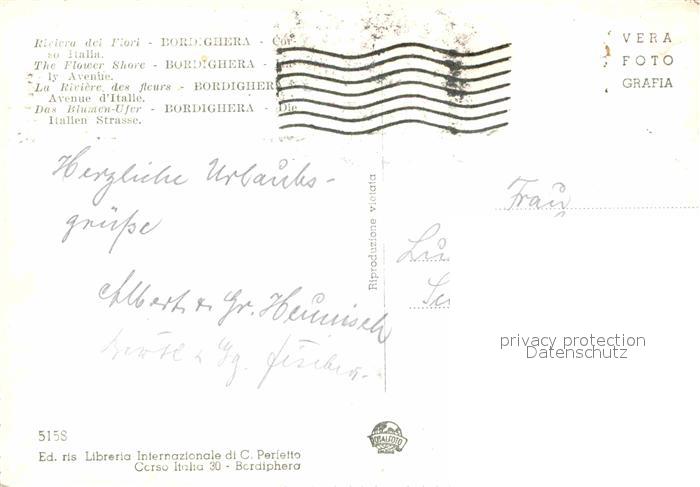 Riviera dei Fiori - BORDIGHERA - Cor-
so Italia.
The Flower Shore - BORDIGHERA -
ly Avenue.
La Rivière des fleurs - BORDIGHERA
Avenue d'Italie.
Das Blumen-Ufer - BORDIGHERA - Die
Italien Strasse.
VERA
FOTO
GRAFIA
Herzliche Urlaubs-
grüße
Albert & Gr. Heunisch
& Gg. Fischer
Riproduzione vietata
Frau
privacy protection
Datenschutz
515S
Ed. ris Libreria Internazionale di C. Perietto
Corso Italia 30 - Bordighera